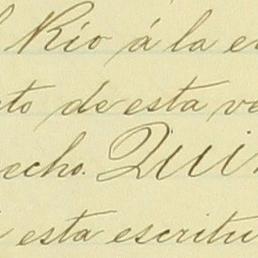 Rio á la en
to de esta ve
echo. QUI
esta escritu